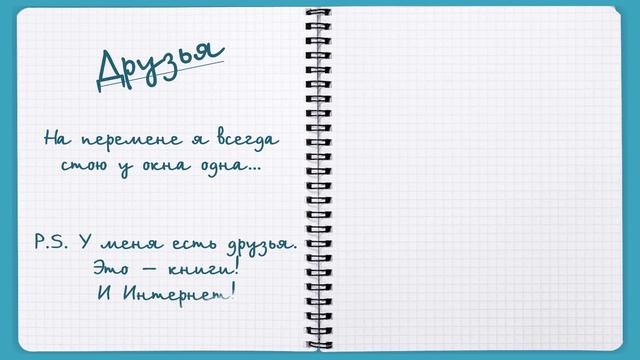 Друзья
На перемене я всегда
стою у окна одна...
P.S. У меня есть друзья.
Это — книги!
И Интернет!